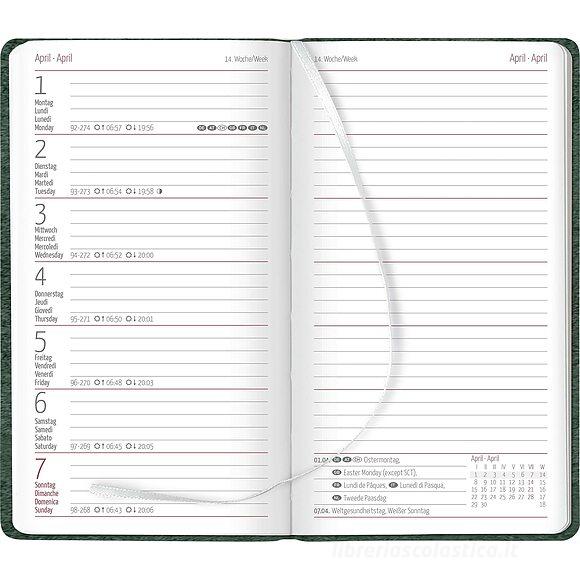 April - April 14. Woche/Week
1
Montag
Lundi
Lunedì
Monday 92-274 ↑ 06:57 ↓ 19:56 DE AT CH GB FR IT NL
2
Dienstag
Mardi
Martedì
Tuesday 93-273 ↑ 06:54 ↓ 19:58
3
Mittwoch
Mercredi
Mercoledì
Wednesday 94-272 ↑ 06:52 ↓ 20:00
4
Donnerstag
Jeudi
Giovedì
Thursday 95-271 ↑ 06:50 ↓ 20:01
5
Freitag
Vendredi
Venerdì
Friday 96-270 ↑ 06:48 ↓ 20:03
6
Samstag
Samedi
Sabato
Saturday 97-269 ↑ 06:45 ↓ 20:05
7
Sonntag
Dimanche
Domenica
Sunday 98-268 ↑ 06:43 ↓ 20:06
14. Woche/Week April - April
01.04. DE AT CH Ostermontag,
GB Easter Monday (except SCT),
FR Lundi de Pâques, IT Lunedì di Pasqua,
NL Tweede Paasdag
07.04. Weltgesundheitstag, Weißer Sonntag
April - April
I II III IV V VI VII W
1 2 3 4 5 6 7 14
8 9 10 11 12 13 14 15
15 16 17 18 19 20 21 16
22 23 24 25 26 27 28 17
29 30 18
libreriascolastica.it